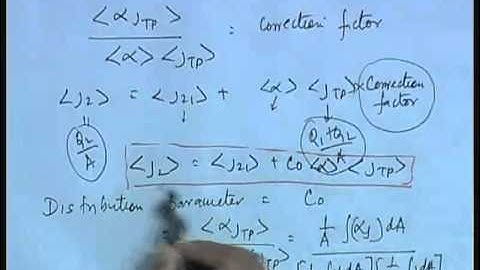 <αJTP> / <α> <JTP> = Correction factor
<J2> = <J21> + <α> <JTP> × Correction factor
Q2/A Q1+Q2/A
<J2> = <J21> + C0 <α> <JTP>
Distribution Parameter = C0
= <αJTP> / = 1/A ∫(αJ)dA